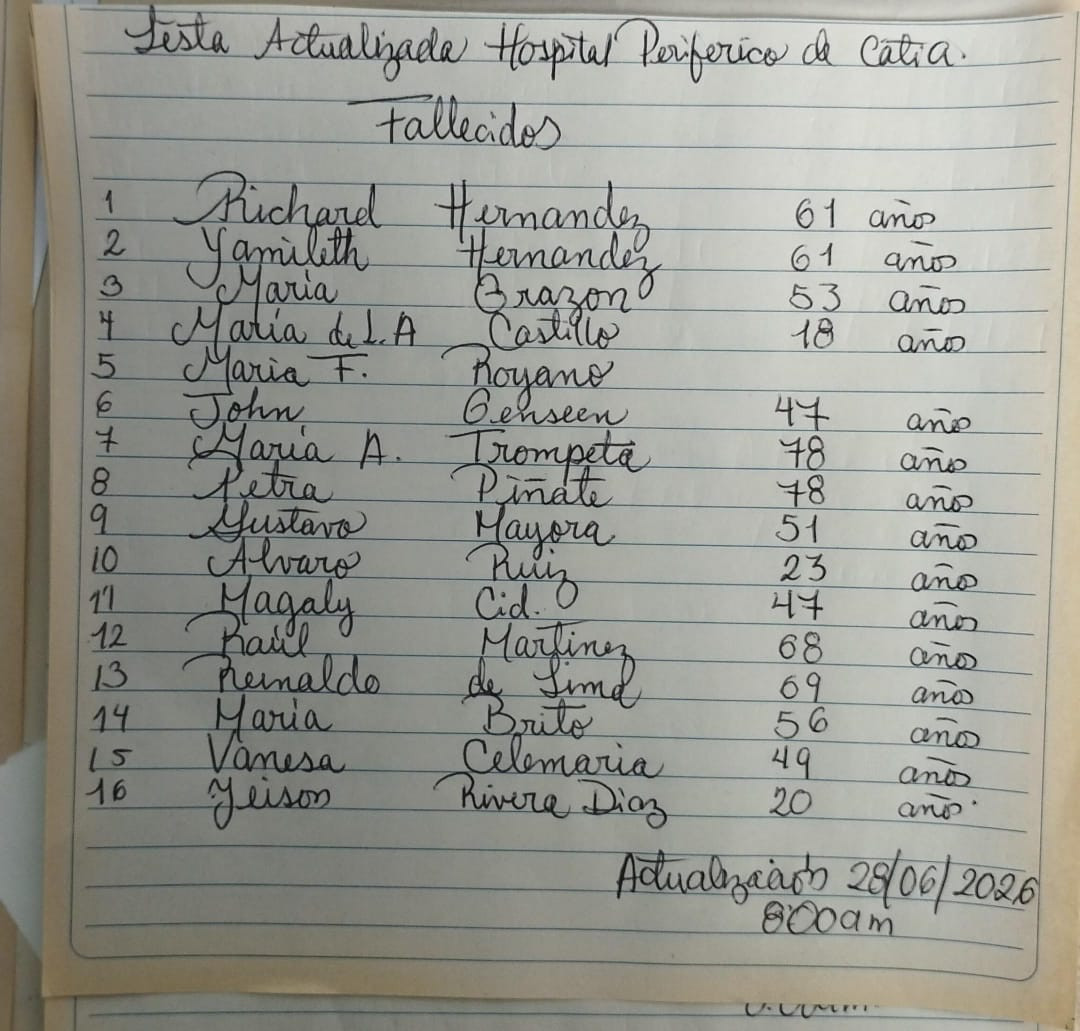 Lista Actualizada Hospital Periferico de Catia.
Fallecidos
1 Richard Hernandez 61 años
2 Yamileth Hernandez 61 años
3 Maria Brazon 53 años
4 Maria de L.A Castillo 18 años
5 Maria F. Royano
6 John Genseen 47 año
7 Maria A. Trompeta 78 años
8 Petra Piñate 78 año
9 Gustavo Mayora 51 años
10 Alvaro Ruiz 23 años
11 Magaly Cid. 47 años
12 Raúl Martinez 68 años
13 Reinaldo de Lima 69 años
14 Maria Brito 56 años
15 Vanesa Celemaria 49 años
16 Yeison Rivera Diaz 20 años
Actualización 28/06/2026
8:00am